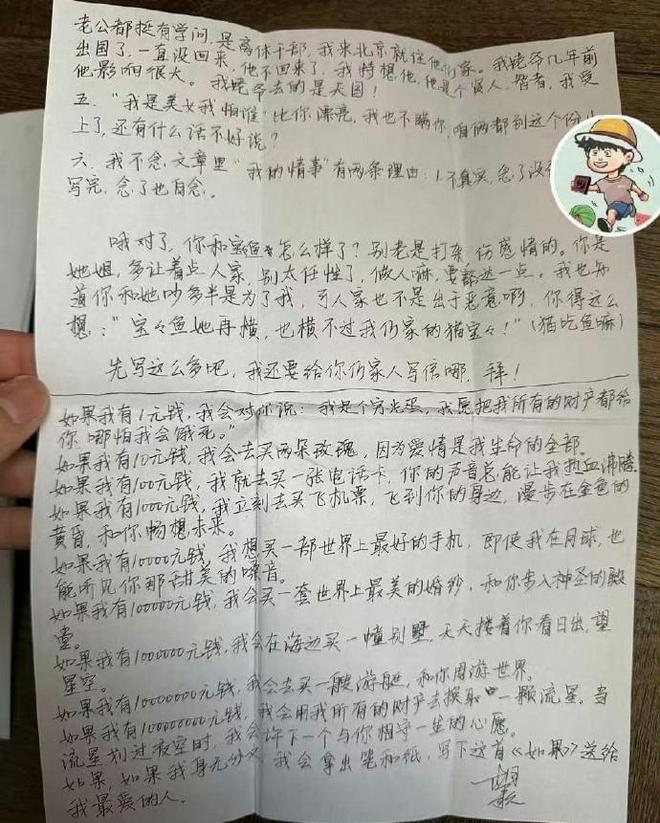 老公都挺有学问,是离休干部,我来北京就住他们家。我姥爷几年前
出国了,一直没回来,他不回来了,我特想他,他是个好人、智者,我受
他影响很大。我姥爷去的是天国!
五."我是美女我怕谁!比你漂亮,我也不瞒你,咱俩都到这个份儿
上了,还有什么话不好说?
六.我不念文章里"我的情事"有两条理由:1.不真实,念了没
写完,念了也白念。
哦对了,你和宝鱼怎么样了?别老是打杂伤感情的。你是
她姐,多让着点人家,别太任性了,做人嘛,要豁达一点。我也知
道你和她吵多半是为了我,可人家也不是出于恶意啊,你得这么
想:"宝々鱼她再横,也横不过我们家的猫宝々!"(猫吃鱼嘛)
先写这么多吧,我还要给你们家人写信哪,拜!
如果我有1元钱,我会对你说:我是个穷光蛋,我愿把我所有的财产都给
你,哪怕我会饿死。"
如果我有10元钱,我会去买两朵玫瑰,因为爱情是我生命的全部。
如果我有100元钱,我就去买一张电话卡,你的声音总能让我热血沸腾
如果我有1000元钱,我立刻去买飞机票,飞到你的身边,漫步在金色的
黄昏,和你畅想未来。
如果我有10000元钱,我想买一部世界上最好的手机,即使我在月球,也
能听见你那甜美的嗓音。
如果我有100000元钱,我会买一套世界上最美的婚纱,和你步入神圣的殿
堂。
如果我有1000000元钱,我会在海边买一幢别墅,天天搂着你看日出,望
星空。
如果我有10000000元钱,我会去买一艘游艇,和你周游世界。
如果我有100000000元钱,我会用我所有的财产去换取一颗流星。当
流星划过夜空时,我会许下一个与你相守一生的心愿。
如果,如果我身无分文,我会拿出笔和纸,写下这首《如果》送给
我最爱的人。